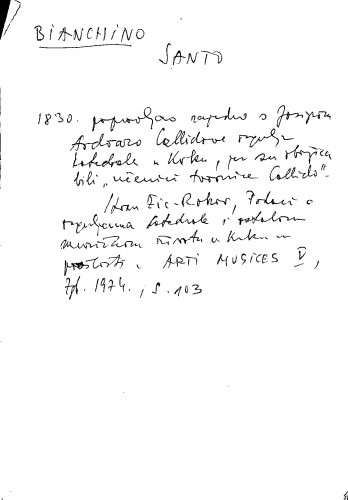 BIANCHINO
SANTO
1830. popravljao zajedno s Josipom
Ardoazo Callidove orgulje
katedrale u Krku, jer su obojica
bili „učenici tvornice Callido".
/Ivan Žic-Rokov, Podaci o
orguljama katedrale i ostalom
muzičkom životu u Krku u
prošlosti, ARTI MUSICES V,
Zgb. 1974., s. 103